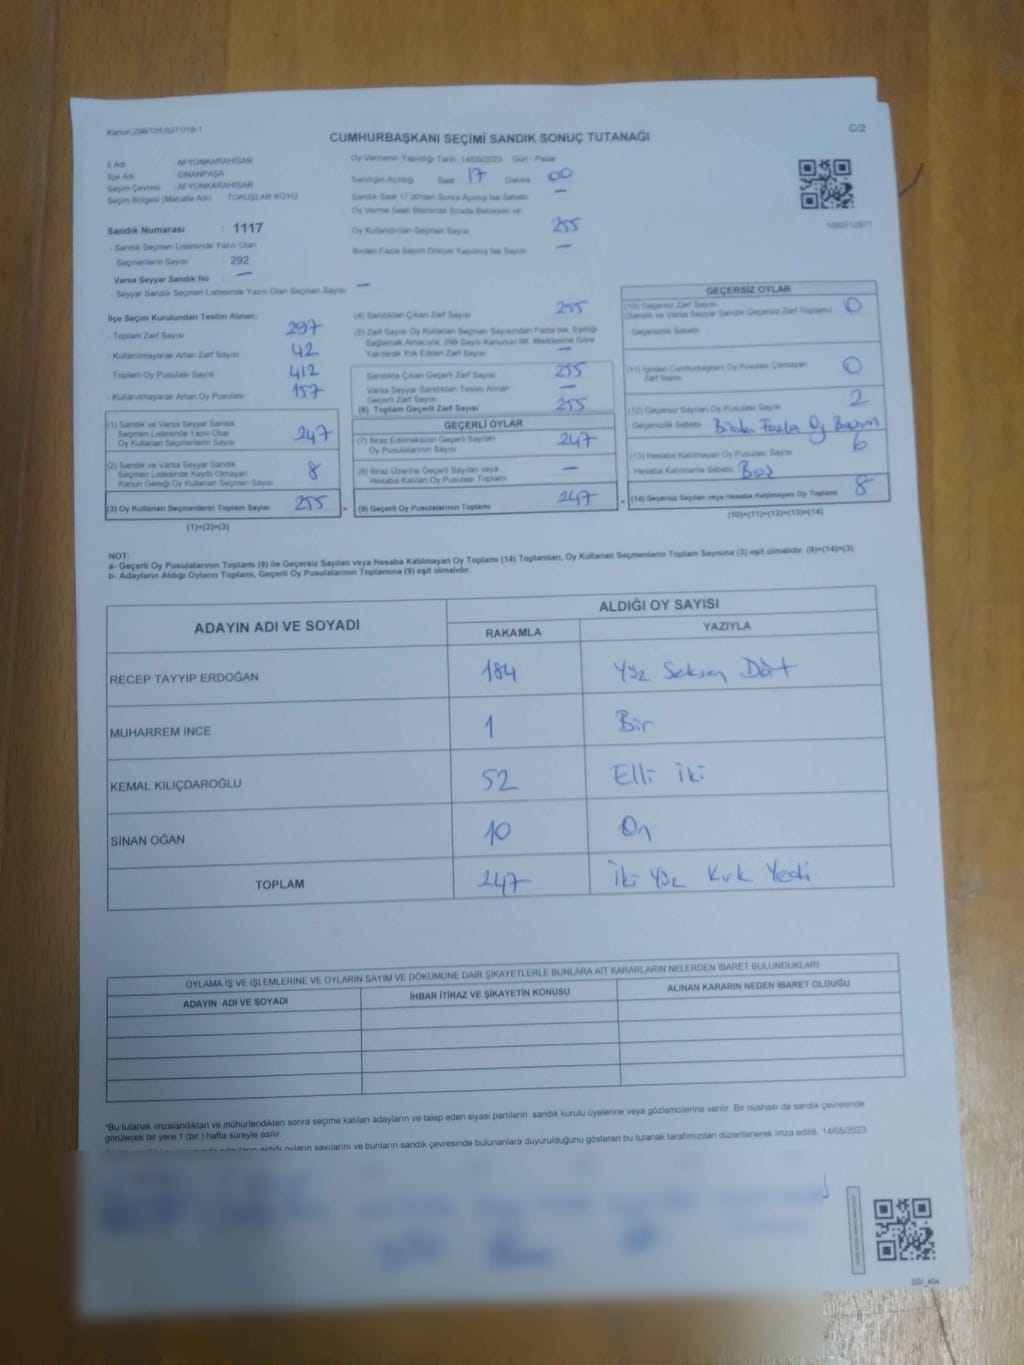 Kanun:298/105;6271/18-1
C/2
CUMHURBAŞKANI SEÇİMİ SANDIK SONUÇ TUTANAĞI
İl Adı : AFYONKARAHİSAR
İlçe Adı : SİNANPAŞA
Seçim Çevresi : AFYONKARAHİSAR
Seçim Bölgesi (Mahalle Adı) : TOKUŞLAR KÖYÜ
Sandık Numarası : 1117
- Sandık Seçmen Listesinde Yazılı Olan
Seçmenlerin Sayısı 292
Varsa Seyyar Sandık No —
- Seyyar Sandık Seçmen Listesinde Yazılı Olan Seçmen Sayısı —
Oy Vermenin Yapıldığı Tarih : 14/05/2023 Gün : Pazar
Sandığın Açıldığı Saat 17 Dakika 00
Sandık Saat 17.00'den Sonra Açılmış İse Sebebi —
Oy Verme Saati Bitiminde Sırada Bekleyen ve
Oy Kullandırılan Seçmen Sayısı 255
Birden Fazla Sayım Döküm Yapılmış İse Sayısı —
İlçe Seçim Kurulundan Teslim Alınan;
- Toplam Zarf Sayısı 297
- Kullanılmayarak Artan Zarf Sayısı 42
- Toplam Oy Pusulası Sayısı 412
- Kullanılmayarak Artan Oy Pusulası 157
(1) Sandık ve Varsa Seyyar Sandık
Seçmen Listesinde Yazılı Olup
Oy Kullanan Seçmenlerin Sayısı 247
(2) Sandık ve Varsa Seyyar Sandık
Seçmen Listesinde Kayıtlı Olmayan
Kanun Gereği Oy Kullanan Seçmen Sayısı 8
(3) Oy Kullanan Seçmenlerin Toplam Sayısı 255
(1)+(2)=(3)
(4) Sandıktan Çıkan Zarf Sayısı 255
(5) Zarf Sayısı Oy Kullanan Seçmen Sayısından Fazla İse, Eşitliği
Sağlamak Amacıyla; 298 Sayılı Kanunun 98. Maddesine Göre
Yakılarak Yok Edilen Zarf Sayısı —
Sandıkta Çıkan Geçerli Zarf Sayısı 255
Varsa Seyyar Sandıktan Teslim Alınan
Geçerli Zarf Sayısı —
(6) Toplam Geçerli Zarf Sayısı 255
GEÇERLİ OYLAR
(7) İtiraz Edilmeksizin Geçerli Sayılan
Oy Pusulalarının Sayısı 247
(8) İtiraz Üzerine Geçerli Sayılan veya
Hesaba Katılan Oy Pusulası Toplamı —
(9) Geçerli Oy Pusulalarının Toplamı 247
GEÇERSİZ OYLAR
(10) Geçersiz Zarf Sayısı
(Sandık ve Varsa Seyyar Sandık Geçersiz Zarf Toplamı) 0
- Geçersizlik Sebebi
(11) İçinden Cumhurbaşkanı Oy Pusulası Çıkmayan
Zarf Sayısı 0
(12) Geçersiz Sayılan Oy Pusulası Sayısı 2
- Geçersizlik Sebebi Birden Fazla Oy Basım
(13) Hesaba Katılmayan Oy Pusulası Sayısı 6
Hesaba Katılmama Sebebi Boş
(14) Geçersiz Sayılan veya Hesaba Katılmayan Oy Toplamı 8
(10)+(11)+(12)+(13)=(14)
NOT:
a- Geçerli Oy Pusulalarının Toplamı (9) ile Geçersiz Sayılan veya Hesaba Katılmayan Oy Toplamı (14) Toplamları, Oy Kullanan Seçmenlerin Toplam Sayısına (3) eşit olmalıdır. (9)+(14)=(3)
b- Adayların Aldığı Oyların Toplamı, Geçerli Oy Pusulalarının Toplamına (9) eşit olmalıdır.
ADAYIN ADI VE SOYADI
ALDIĞI OY SAYISI
RAKAMLA YAZIYLA
RECEP TAYYİP ERDOĞAN 184 Yüz Seksen Dört
MUHARREM İNCE 1 Bir
KEMAL KILIÇDAROĞLU 52 Elli iki
SİNAN OĞAN 10 On
TOPLAM 247 İki Yüz Kırk Yedi
OYLAMA İŞ VE İŞLEMLERİNE VE OYLARIN SAYIM VE DÖKÜMÜNE DAİR ŞİKAYETLERLE BUNLARA AİT KARARLARIN NELERDEN İBARET BULUNDUKLARI
ADAYIN ADI VE SOYADI İHBAR İTİRAZ VE ŞİKAYETİN KONUSU ALINAN KARARIN NEDEN İBARET OLDUĞU
*Bu tutanak imzalandıktan ve mühürlendikten sonra seçime katılan adayların ve talep eden siyasi partilerin sandık kurulu üyelerine veya gözlemcilerine verilir. Bir nüshası da sandık çevresinde
görülecek bir yere 1 (bir ) hafta süreyle asılır.
aldığı oyların sayılarını ve bunların sandık çevresinde bulunanlara duyurulduğunu gösteren bu tutanak tarafımızdan düzenlenerek imza edildi. 14/05/2023